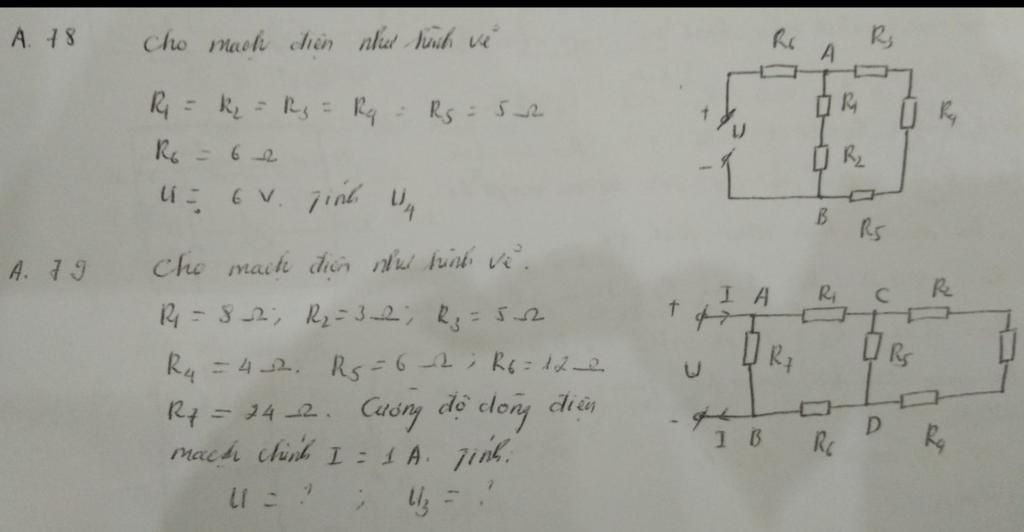 A. 78 Cho mạch điện như hình vẽ
R1 = R2 = R3 = R4 = R5 = 5 Ω
R6 = 6 Ω
U = 6 V. Tính U4
R6 A R3
R1 R4
+ U -
R2
B R5
A. 79 Cho mạch điện như hình vẽ.
R1 = 8 Ω; R2 = 3 Ω; R3 = 5 Ω
R4 = 4 Ω. R5 = 6 Ω; R6 = 12 Ω
R7 = 24 Ω. Cường độ dòng điện
mạch chính I = 1 A. Tính:
U = ? ; U3 = ?
+ I A R1 C R2
U R7 R5
- I B R6 D R4